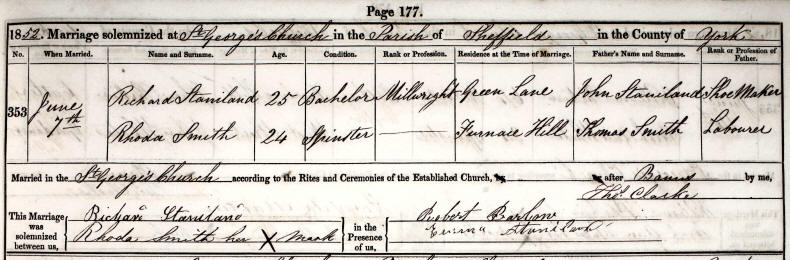 Page 177.
1852. Marriage solemnized at St. George's Church in the Parish of Sheffield in the County of York
No. When Married. Name and Surname. Age. Condition. Rank or Profession. Residence at the Time of Marriage. Father's Name and Surname. Rank or Profession of Father.
353 June 7th Richard Staniland 25 Bachelor Millwright Green Lane John Staniland Shoe Maker
Rhoda Smith 24 Spinster Furnace Hill Thomas Smith Labourer
Married in the St. George's Church according to the Rites and Ceremonies of the Established Church, by or after Banns by me,
Thos. Clarke
This Marriage was solemnized between us, Richard Staniland
Rhoda Smith her X Mark
in the Presence of us, Robert Barlow
Emma Staniland